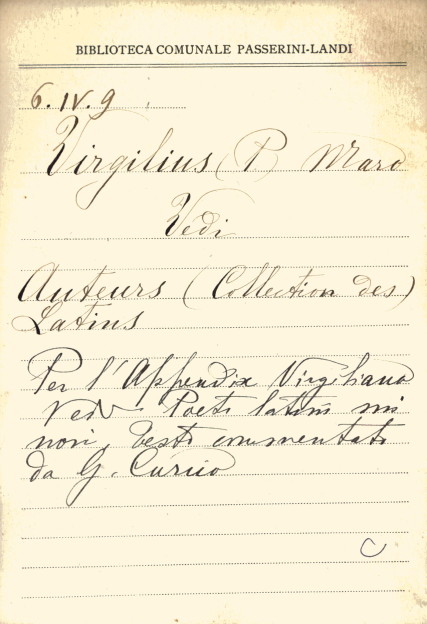 BIBLIOTECA COMUNALE PASSERINI-LANDI
6. IV. 9
Virgilius (P.) Maro
Vedi
Auteurs (Collection des)
Latins
Per l'Appendix Virgiliana
Vedi Poeti latini mi
nori, Testo commentato
da G. Curcio
C